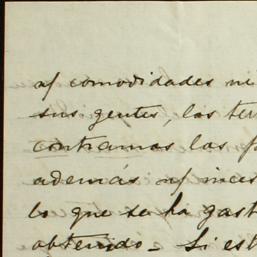 n/ comodidades ni
sus gentes, las ter
contramos las p
además n/ neces
lo que se ha gast
obtenido_ Si est